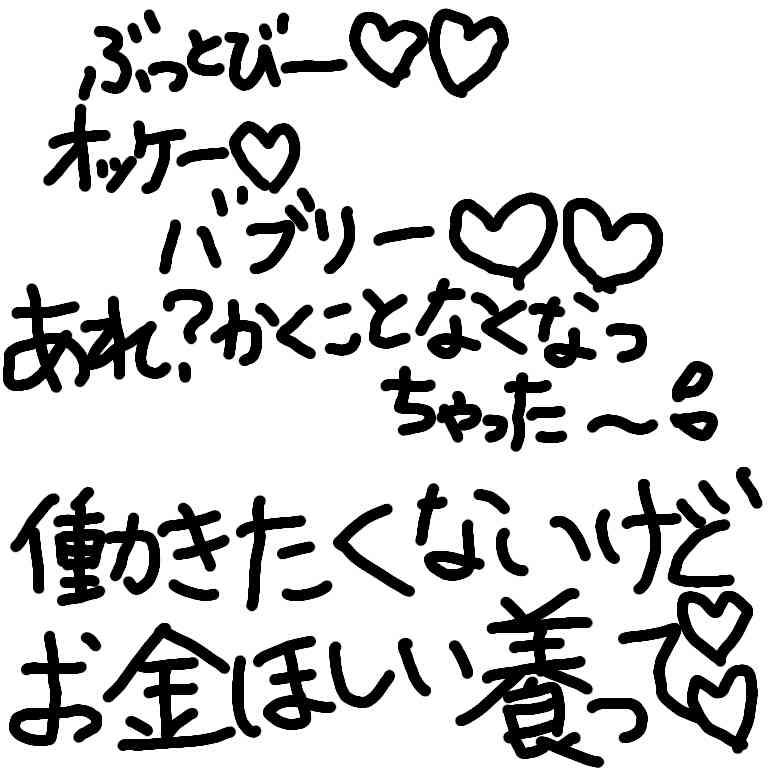 ぶっとびー♡♡
オッケー♡
バブリー♡♡
あれ?かくことなくなっ
ちゃった〜
働きたくないけど
お金ほしい養って♡♡